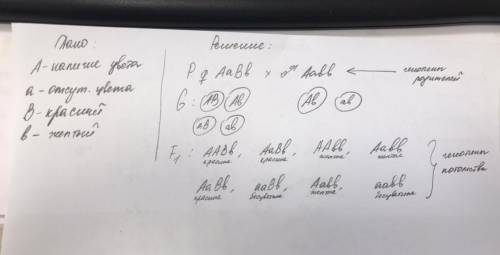 Дано:
А - наличие цвета
а - отсут. цвета
В - красный
в - желтый
Решение:
P ♀ АаВв x ♂ Аавв ← генотипы родителей
G: АВ Ав Ав ав
аВ ав
F₁: ААВв, АаВв, ААвв, Аавв
красные красные желтые желтые
АаВв, ааВв, Аавв, аавв
красные бесцветные желтые бесцветные
генотипы
потомства